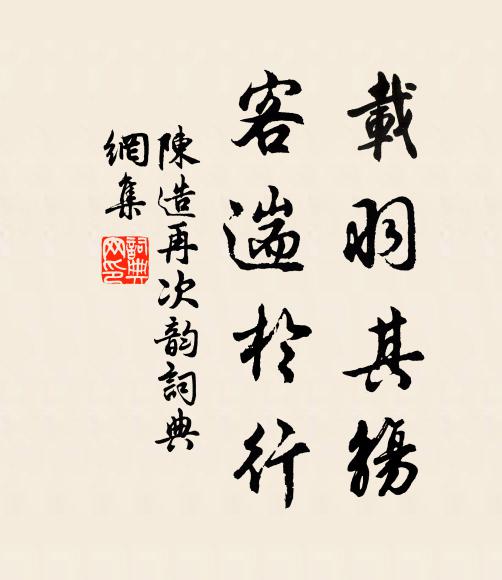 載羽其觴
客遄於行
陳造再次韵詞典
網集
詞典
网印